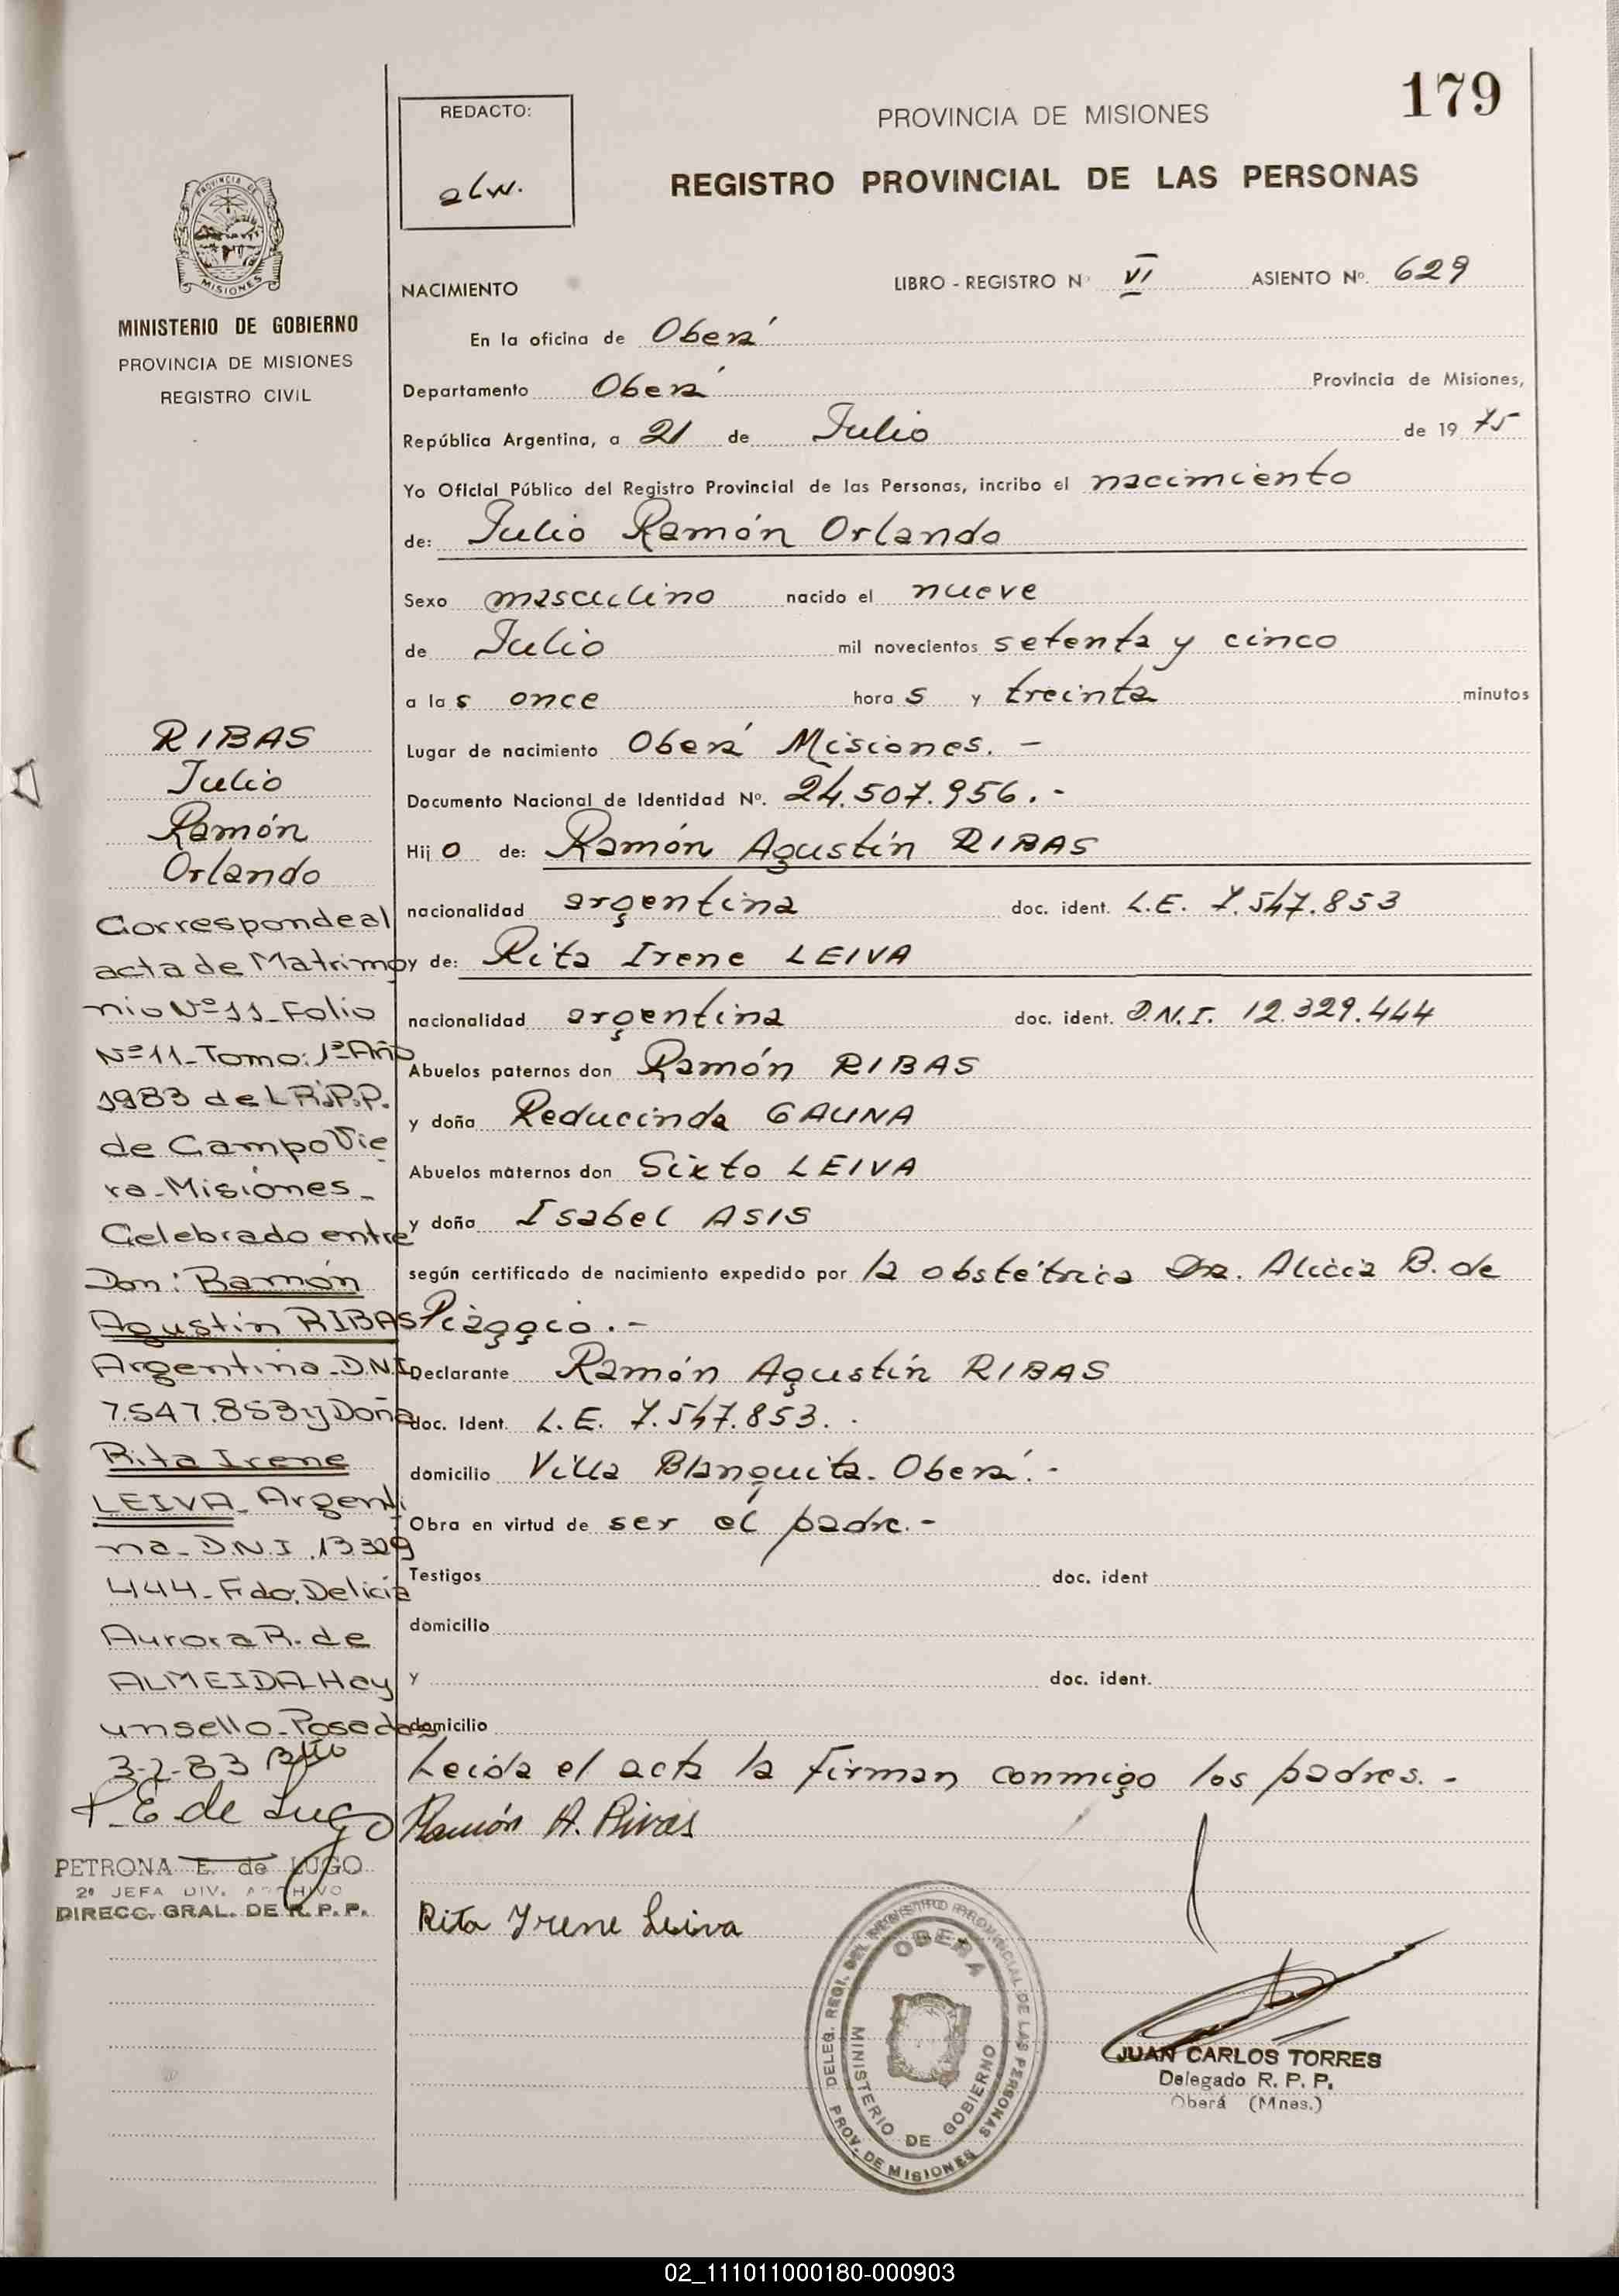 179
REDACTO:
alw.
PROVINCIA DE MISIONES
REGISTRO PROVINCIAL DE LAS PERSONAS
PROVINCIA DE
MISIONES
MINISTERIO DE GOBIERNO
PROVINCIA DE MISIONES
REGISTRO CIVIL
NACIMIENTO
LIBRO - REGISTRO Nº VI ASIENTO Nº. 629
En la oficina de Oberá
Departamento Oberá Provincia de Misiones,
República Argentina, a 21 de Julio de 1975
Yo Oficial Público del Registro Provincial de las Personas, incribo el nacimiento
de: Julio Ramón Orlando
Sexo masculino nacido el nueve
de Julio mil novecientos setenta y cinco
a las once horas y treinta minutos
Lugar de nacimiento Oberá Misiones. -
Documento Nacional de Identidad Nº. 24.507.956. -
Hijo de: Ramón Agustín RIBAS
nacionalidad argentina doc. ident. L.E. 7.547.853
y de: Rita Irene LEIVA
nacionalidad argentina doc. ident. D.N.I. 12.329.444
Abuelos paternos don Ramón RIBAS
y doña Reducinda GAUNA
Abuelos maternos don Sixto LEIVA
y doña Isabel ASIS
según certificado de nacimiento expedido por la obstétrica Dra. Alicia B. de
Piaggio. -
Declarante Ramón Agustín RIBAS
doc. Ident. L.E. 7.547.853. .
domicilio Villa Blanquita. Oberá. -
Obra en virtud de ser el padre. -
Testigos doc. ident
domicilio
y doc. ident.
domicilio
Leída el acta la firman conmigo los padres. -
Ramón A. Rivas
Rita Irene Leiva
RIBAS
Julio
Ramón
Orlando
Corresponde al
acta de Matrimo
nio Nº 11 Folio
Nº 11 - Tomo: 1º Año
1983 del R.P.P.
de Campo Vie
ra - Misiones -
Celebrado entre
Don: Ramón
Agustin RIBAS
Argentina - D.N.I
7.547.853 y Doña
Rita Irene
LEIVA - Argenti
na - D.N.I. 13.329
444 - Fdo: Delicia
Aurora R. de
ALMEIDA Hay
un sello - Posadas
3-2-83
P. E de Lugo
PETRONA E. de LUGO
2ª JEFA DIV. ARCHIVO
DIRECC. GRAL. DE R. P. P.
DELEG. REGI. DEL REGISTRO PROVINCIAL DE LAS PERSONAS
OBERA
MINISTERIO DE GOBIERNO
PROV. DE MISIONES
JUAN CARLOS TORRES
Delegado R. P. P.
Oberá (Mnes.)
02_111011000180-000903